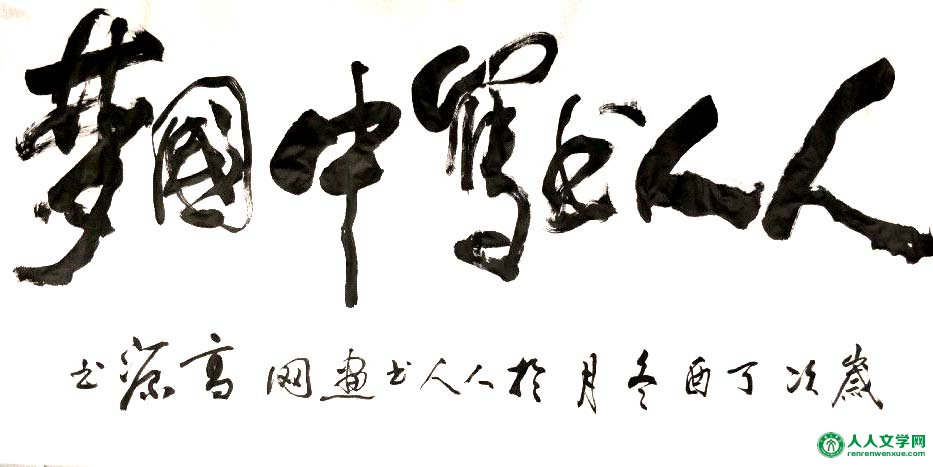 人人书写中国梦
歲次丁酉冬月於人人书畫网高源书
人人文学网
renrenwenxue.com